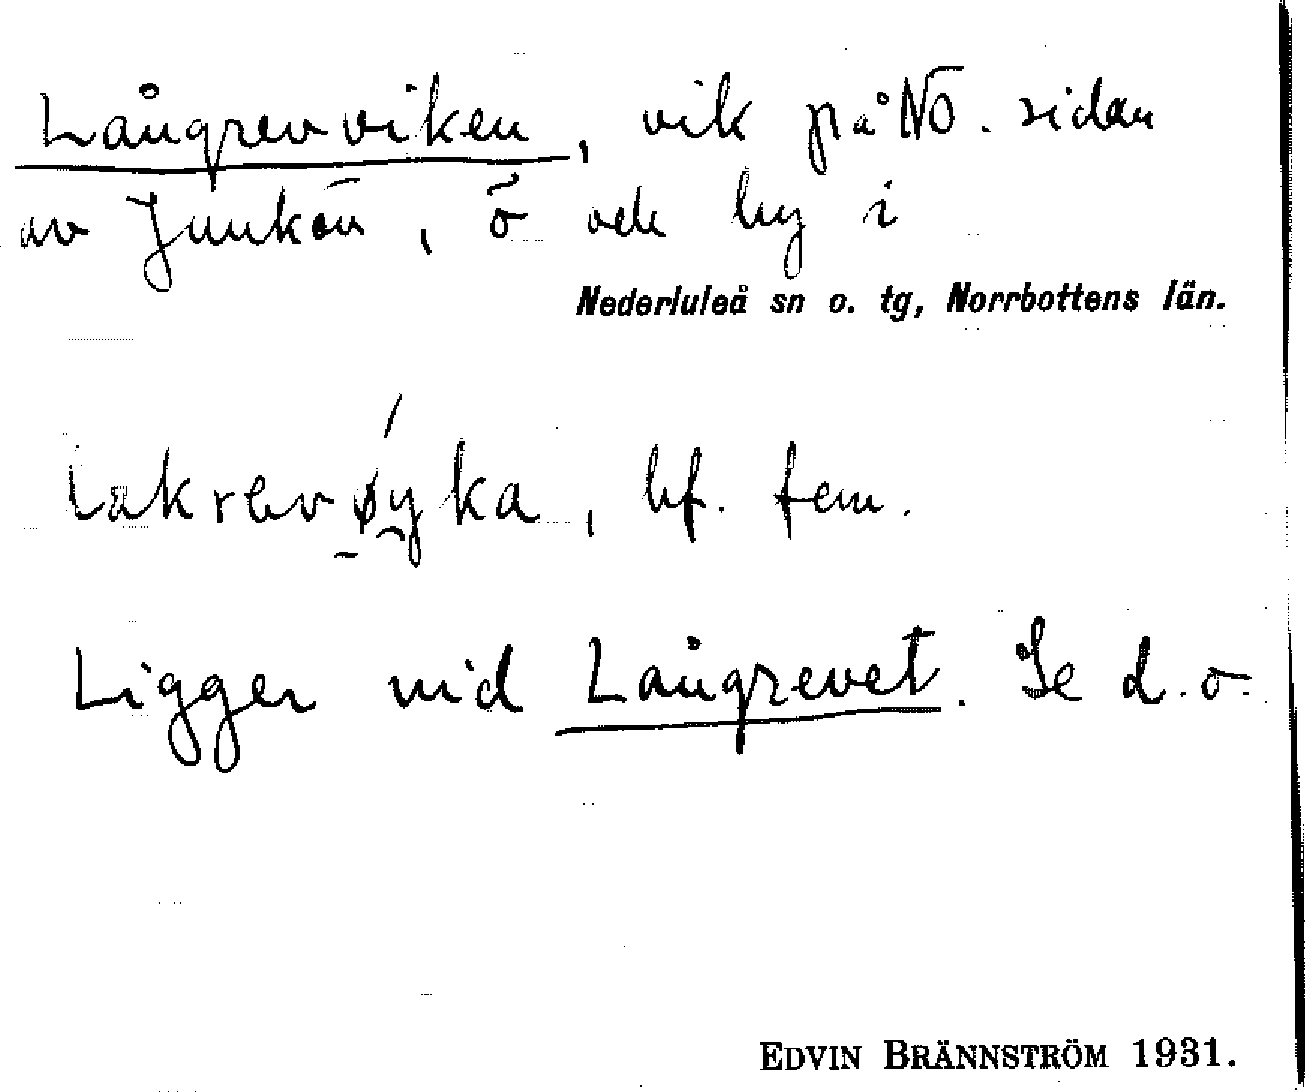 Långrevviken, vik på NO. sidan
av Junkön, ö och by i
Nederluleå sn o. tg, Norrbottens län.
lakrevøyka, bf. fem.
Ligger vid Långrevet. Se d.o.
EDVIN BRÄNNSTRÖM 1931.